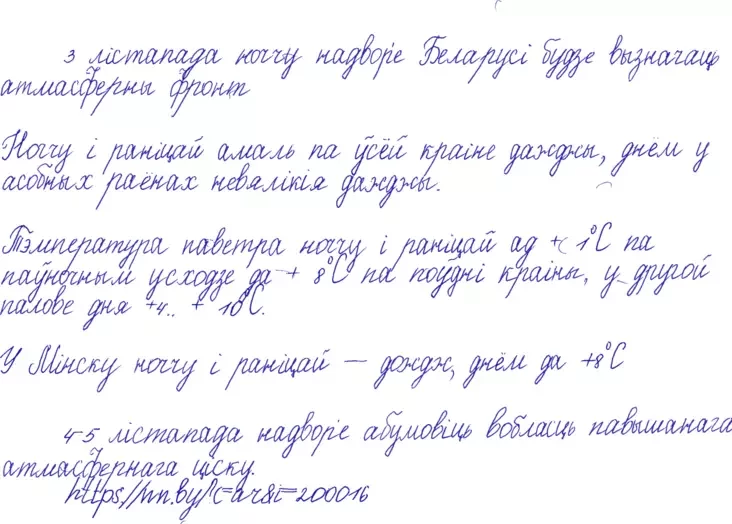 3 лістапада ноччу надвор'е Беларусі будзе вызначаць
атмасферны фронт
Ноччу і раніцай амаль па ўсёй краіне дажджы, днём у
асобных раёнах невялікія дажджы.
Тэмпература паветра ноччу і раніцай ад +1°С па
паўночным усходзе да + 8°С па поўдні краіны, у другой
палове дня +4.. + 10°С.
У Мінску ноччу і раніцай — дождж, днём да +8°С
4-5 лістапада надвор'е абумовіць вобласць павышанага
атмасфернага ціску.
https://nn.by/?c=ar&i=200016